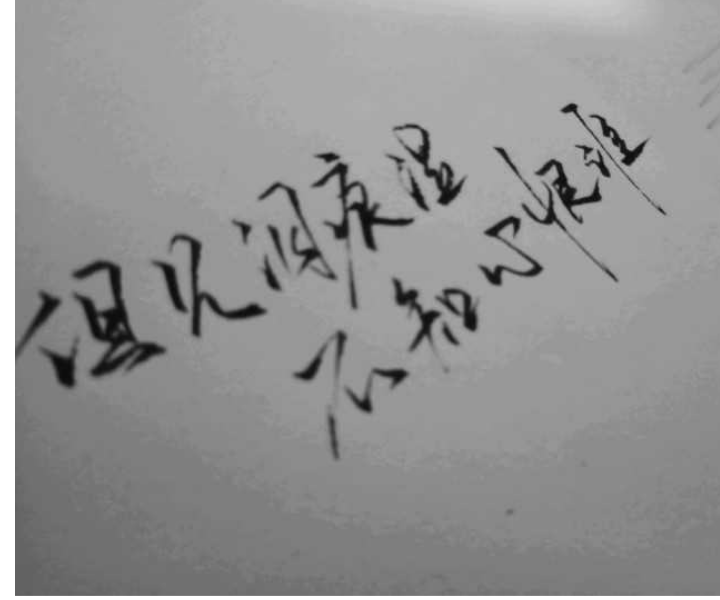 但见泪痕湿
不知心恨谁